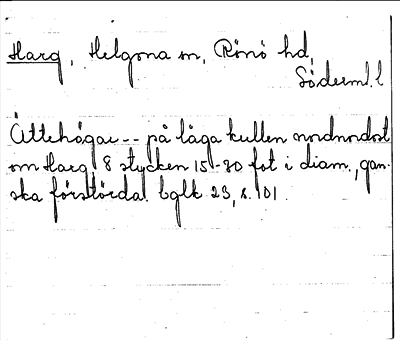 Harg, Helgona sn, Rönö hd,
Söderml. l
Ättehögar -- på låga kullen nordnordost
om Harg, 8 stycken 15-30 fot i diam., gan-
ska förstörda. bglk 23, s. 101.